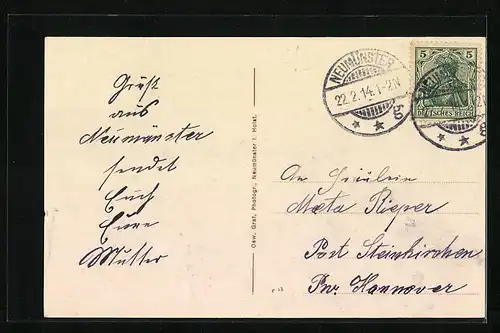 Gruß
aus
Neumünster
sendet
Euch
Eure
Mutter
Osw. Graf, Photogr., Neumünster i. Holst.
NEUMÜNSTER
22.2.14.1-2N
* *
5 5
DEUTSCHES REICH
An Fräulein
Meta Pieper
Post Steinkirchen
Prv. Hannover